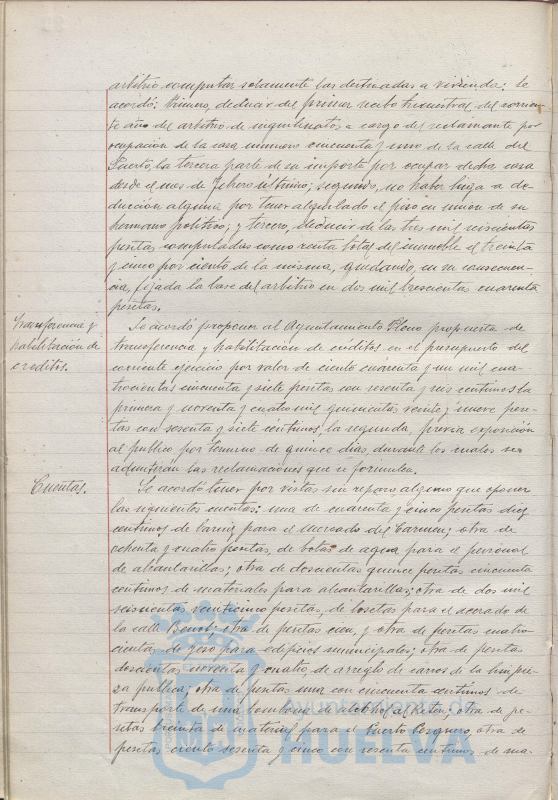 arbitrio computar solamente las destinadas a vivienda; Se
acordó: Primero, deducir del primer recibo trimestral del corrien-
te año del arbitrio de inquilinatos a cargo del reclamante por
ocupación de la casa número cincuenta y uno de la calle del
Puerto, la tercera parte de su importe por ocupar dicha casa
desde el mes de Febrero último; segundo, no haber lugar a de-
ducción alguna por tener alquilado el piso en unión de su
hermano político; y tercero, deducir de las tres mil seiscientas
pesetas computadas como renta total del inmueble el treinta
y cinco por ciento de la misma, quedando, en su consecuen-
cia, fijada la base del arbitrio en dos mil trescientas cuarenta
pesetas.
Transferencia y
habilitación de
creditos.
Se acordó proponer al Ayuntamiento Pleno propuesta de
transferencia y habilitación de créditos en el presupuesto del
corriente ejercicio por valor de ciento cuarenta y un mil cua-
trocientas cincuenta y siete pesetas con sesenta y seis centimos la
primera y noventa y cuatro mil quinientas veinte y nueve pese-
tas con sesenta y siete centimos la segunda, previa exposición
al publico por termino de quince dias durante los cuales se
admitirán las reclamaciones que se formulen.
Cuentas.
Se acordó tener por vistas sin reparo alguno que oponer
las siguientes cuentas: una de cuarenta y cinco pesetas diez
centimos de barniz para el Mercado del Carmen; otra de
ochenta y cuatro pesetas, de botas de agua para el personal
de alcantarillas; otra de doscientas quince pesetas cincuenta
centimos de materiales para alcantarillas; otra de dos mil
seiscientas veinticinco pesetas, de losetas para el acerado de
la calle Benot; otra de pesetas cien, y otra de pesetas cuatro-
cientas, de yeso para edificios municipales; otra de pesetas
doscientas noventa y cuatro, de arreglo de carros de la limpie-
za publica; otra de pesetas una con cincuenta centimos de
transporte de una bombona de alcohol al Reten; otra de pe-
setas treinta de material para el Puerto Pesquero, otra de
pesetas ciento sesenta y cinco con sesenta centimos de ma-
Ayuntamiento de
HUELVA